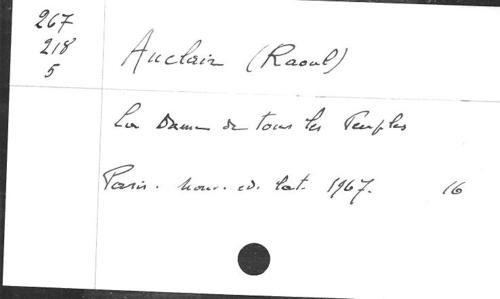 267
218
5
Auclair (Raoul)
La Dame de tous les Peuples
Paris. Nouv. éd. lat. 1967. 16